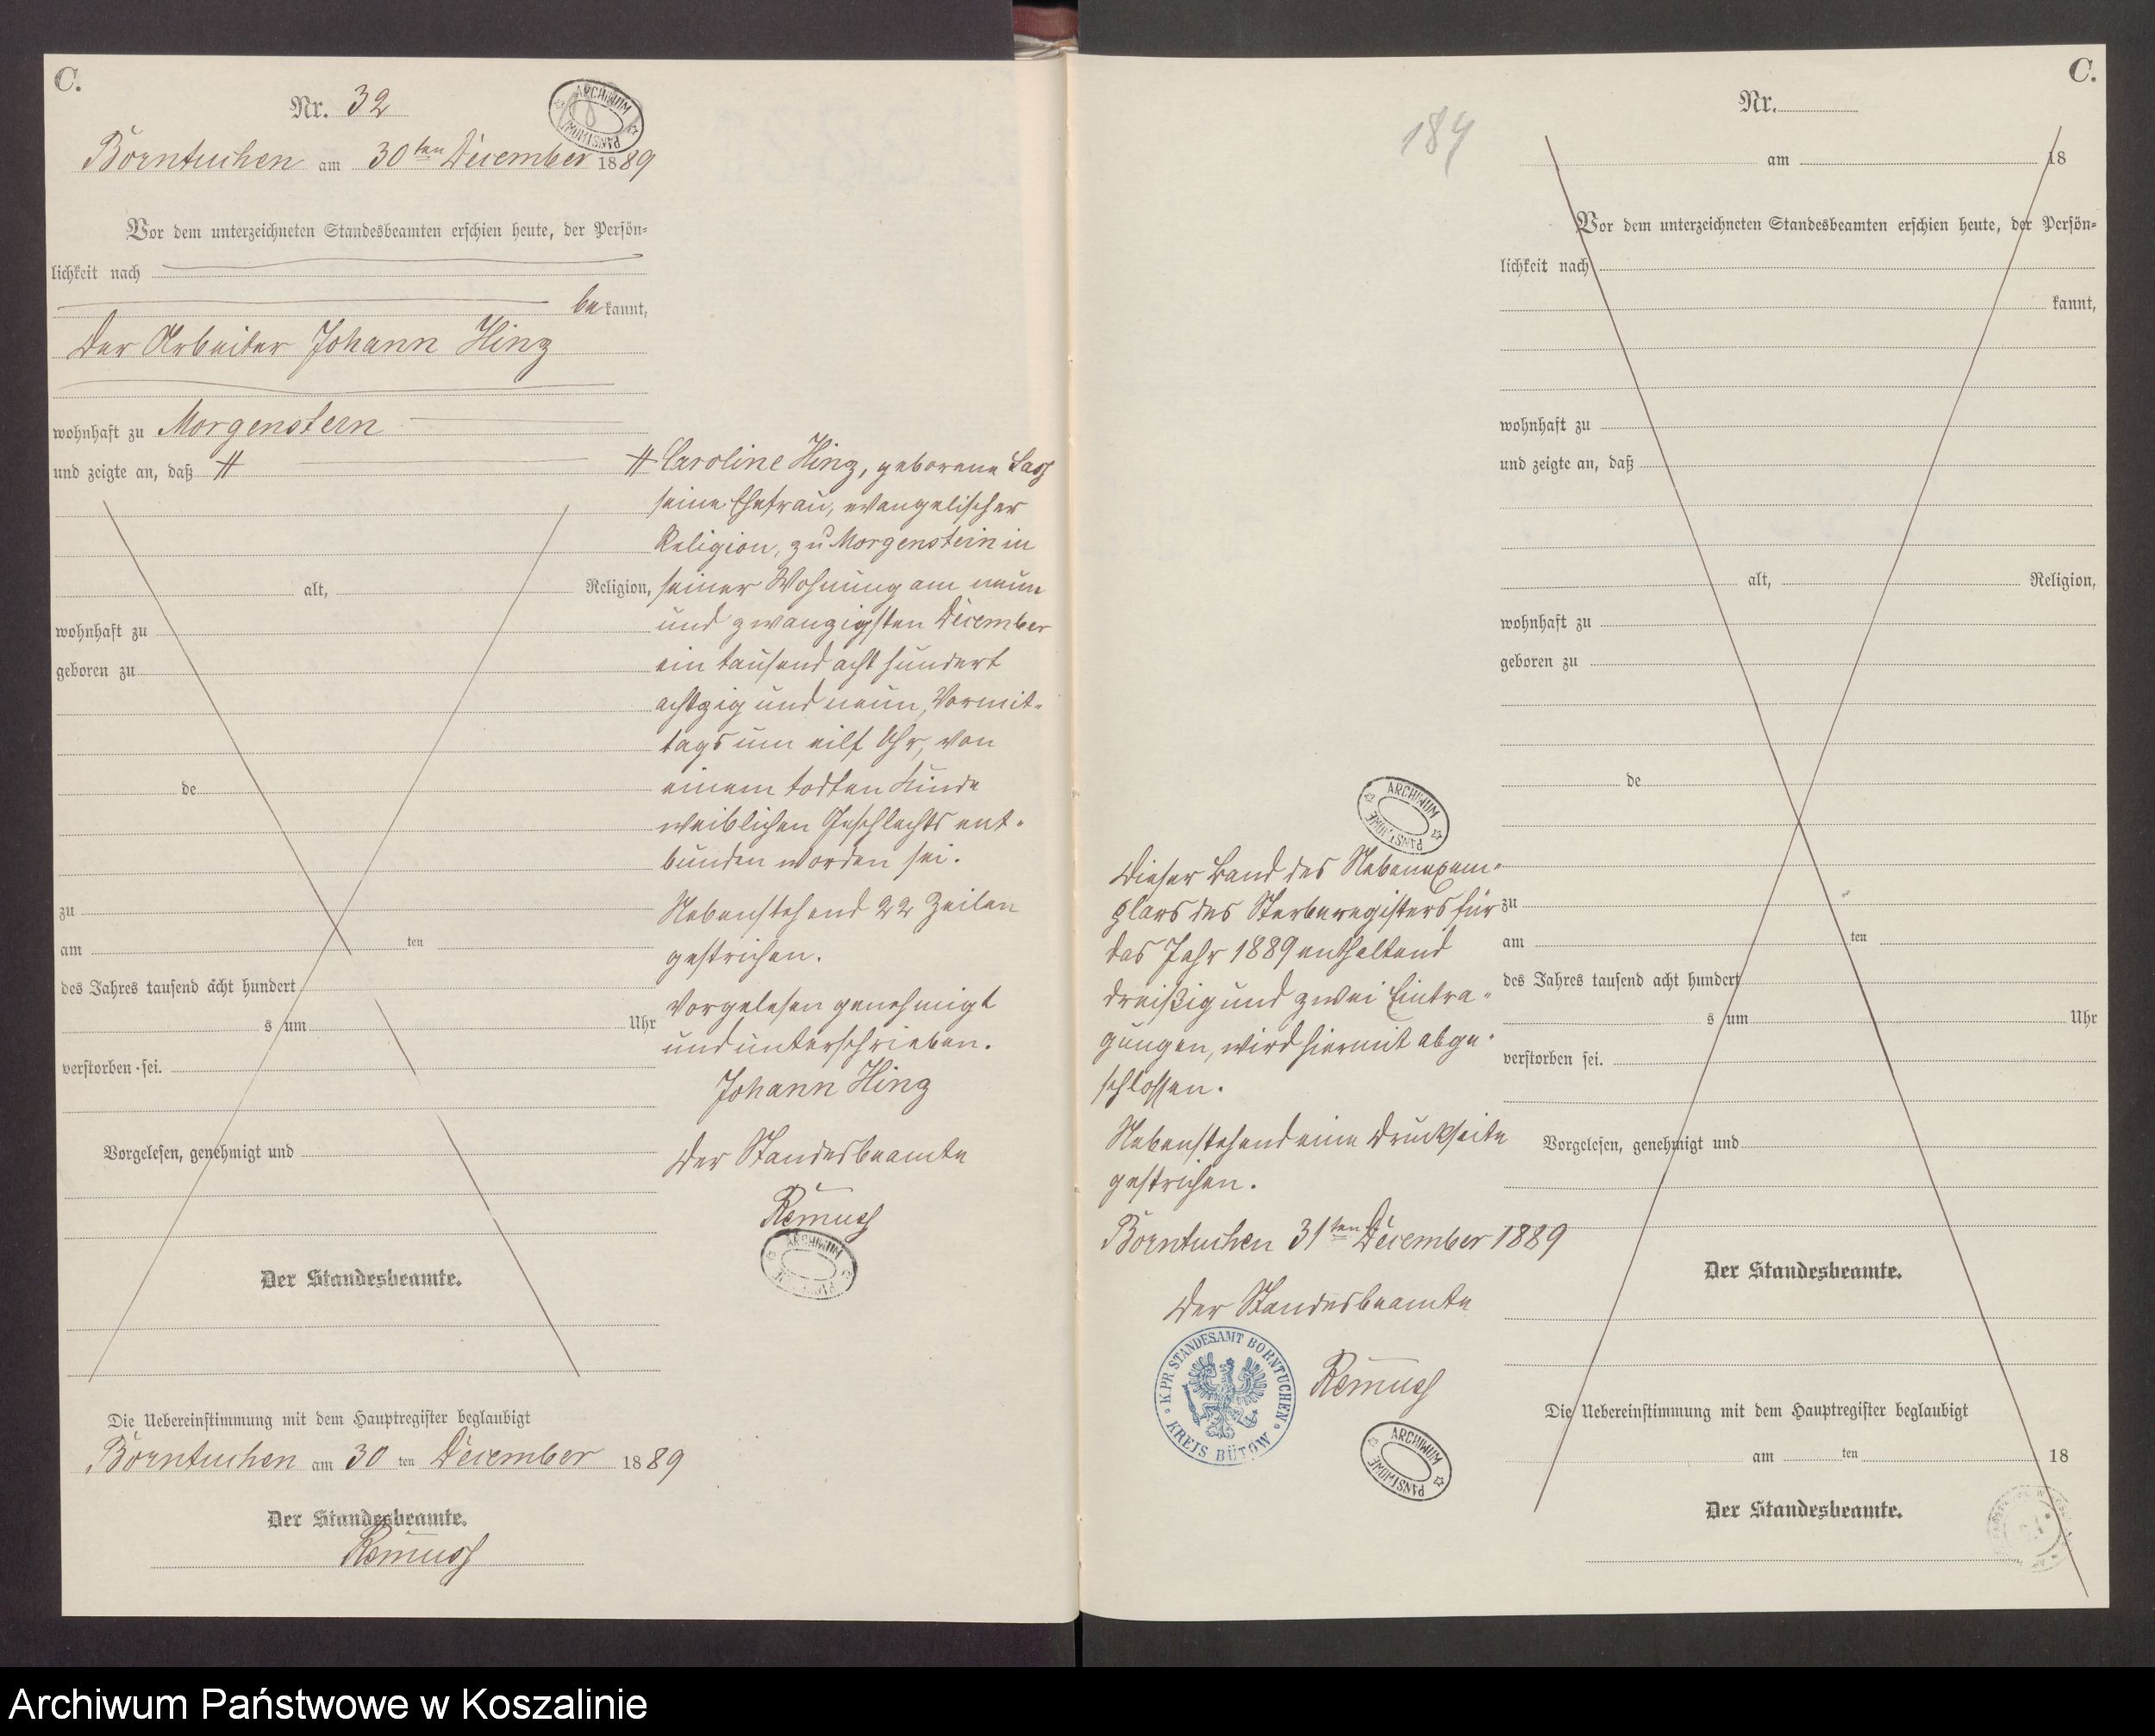 C.
Nr. 32
ARCHIWUM PAŃSTWOWE
Borntuchen am 30ten December 1889
Vor dem unterzeichneten Standesbeamten erschien heute, der Persön-
lichkeit nach
be kannt,
der Arbeiter Johann Hinz
wohnhaft zu Morgenstern
und zeigte an, daß #
alt, Religion,
wohnhaft zu
geboren zu
de
zu
am ten
des Jahres tausend acht hundert
s um Uhr
verstorben sei.
Vorgelesen, genehmigt und
Der Standesbeamte.
Die Uebereinstimmung mit dem Hauptregister beglaubigt
Borntuchen am 30 ten December 1889
Der Standesbeamte.
Remuss
# Caroline Hinz, geborene Lass
seine Ehefrau, evangelischer
Religion, zu Morgenstern in
seiner Wohnung am neun
und zwanzigsten December
ein tausend acht hundert
achtzig und neun, Vormit-
tags um eilf Uhr, von
einem todten Kinde
weiblichen Geschlechts ent-
bunden worden sei.
Nebenstehend 22 Zeilen
gestrichen.
Vorgelesen genehmigt
und unterschrieben.
Johann Hinz
Der Standesbeamte
Remuss
ARCHIWUM PAŃSTWOWE
184
ARCHIWUM PAŃSTWOWE
Dieser Band des Nebenexem-
plars des Sterberegisters für
das Jahr 1889 enthaltend
dreißig und zwei Eintra-
gungen, wird hiermit abge-
schlossen.
Nebenstehend eine Druckseite
gestrichen.
Borntuchen 31ten December 1889
Der Standesbeamte
Remuss
K. PR. STANDESAMT BORNTUCHEN
KREIS BÜTOW
ARCHIWUM PAŃSTWOWE
C.
Nr.
am 18
Vor dem unterzeichneten Standesbeamten erschien heute, der Persön-
lichkeit nach
kannt,
wohnhaft zu
und zeigte an, daß
alt, Religion,
wohnhaft zu
geboren zu
de
zu
am ten
des Jahres tausend acht hundert
s um Uhr
verstorben sei.
Vorgelesen, genehmigt und
Der Standesbeamte.
Die Uebereinstimmung mit dem Hauptregister beglaubigt
am ten 18
Der Standesbeamte.
Archiwum Państwowe w Koszalinie